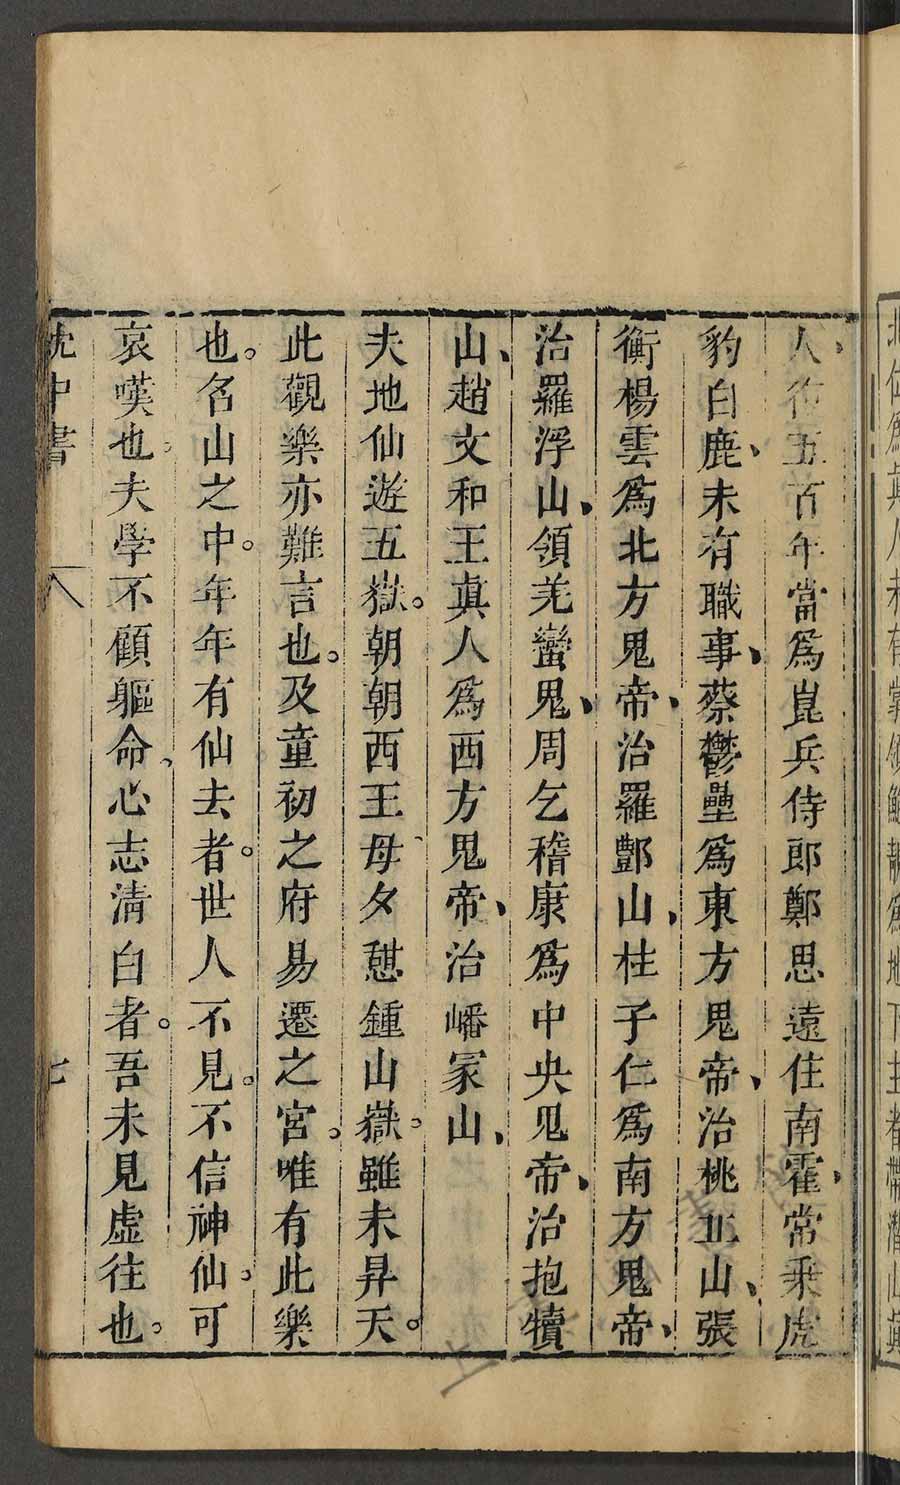 北位爲真人未有掌領鮑靚爲地下主者帶潛山真
人、位五百年當爲崑兵侍郎鄭思遠住南霍、常乘虎
豹白鹿、未有職事、蔡鬱壘爲東方鬼帝、治桃丘山、張
衡楊雲爲北方鬼帝、治羅酆山、杜子仁爲南方鬼帝、
治羅浮山、領羌蠻鬼、周乞稽康爲中央鬼帝、治抱犢
山、趙文和王眞人爲西方鬼帝、治嶓冢山、
夫地仙遊五嶽。朝朝西王母、夕憇鍾山嶽。雖未昇天。
此觀樂亦難言也。及童初之府易遷之宮。唯有此樂
也。名山之中。年年有仙去者。世人不見。不信神仙。可
哀嘆也。夫學不顧軀命、心志淸白者。吾未見虛往也。
枕中書 八 七